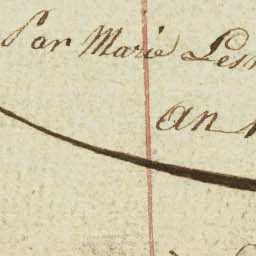 Par Marie Les
an